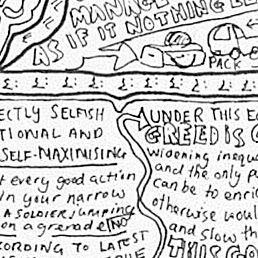 MANAGE
AS IF IT NOTHING
PACK
£: £: £: £: £: £: £: £: £:
ECTLY SELFISH
TIONAL AND
SELF-MAXIMISING
t every good action
in your narrow
A SOLDIER jumping
on a grenade (NO
CORDING TO LATEST
UNDER THIS E
GREED IS G
widening inequ
and the only p
can be to enri
otherwise woul
and slow th
THIS GO